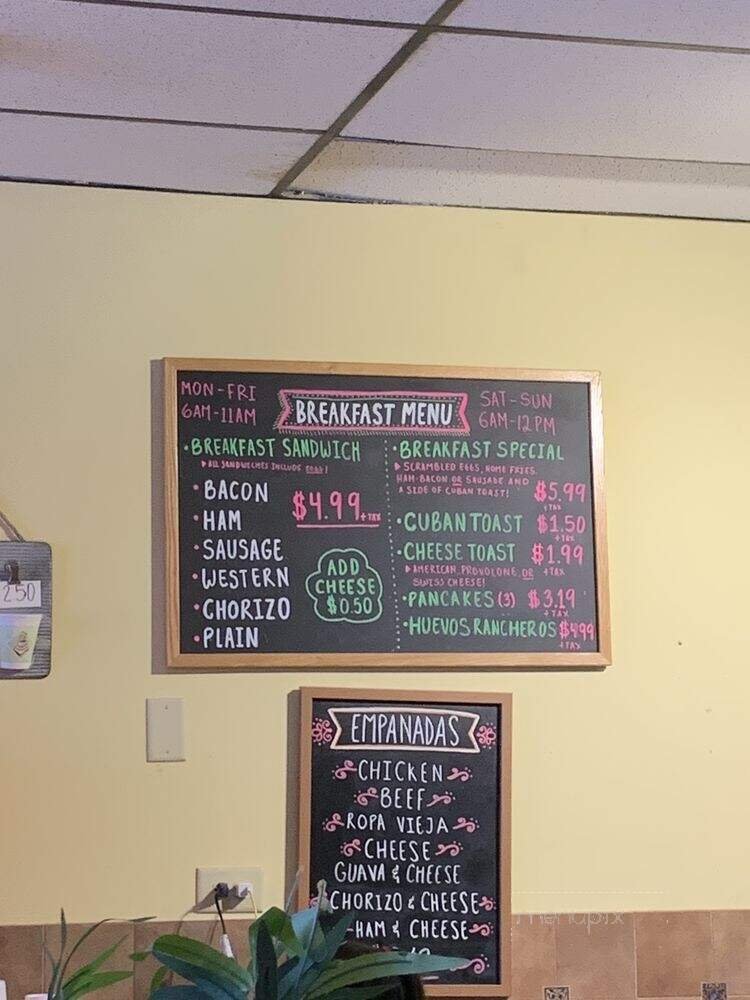 MON-FRI
6AM-11AM
BREAKFAST MENU
SAT-SUN
6AM-12PM
•BREAKFAST SANDWICH
▸ALL SANDWICHES INCLUDE EGGS!
•BACON
•HAM
•SAUSAGE
•WESTERN
•CHORIZO
•PLAIN
$4.99 +TAX
ADD
CHEESE
$0.50
•BREAKFAST SPECIAL
▸SCRAMBLED EGGS, HOME FRIES,
HAM-BACON OR SAUSAGE AND
A SIDE OF CUBAN TOAST!
$5.99
+TAX
•CUBAN TOAST $1.50
+TAX
•CHEESE TOAST $1.99
+TAX
▸AMERICAN, PROVOLONE, OR
SWISS CHEESE!
•PANCAKES (3) $3.19
+TAX
•HUEVOS RANCHEROS $4.99
+TAX
250
EMPANADAS
CHICKEN
BEEF
ROPA VIEJA
CHEESE
GUAVA & CHEESE
CHORIZO & CHEESE
HAM & CHEESE
menupix